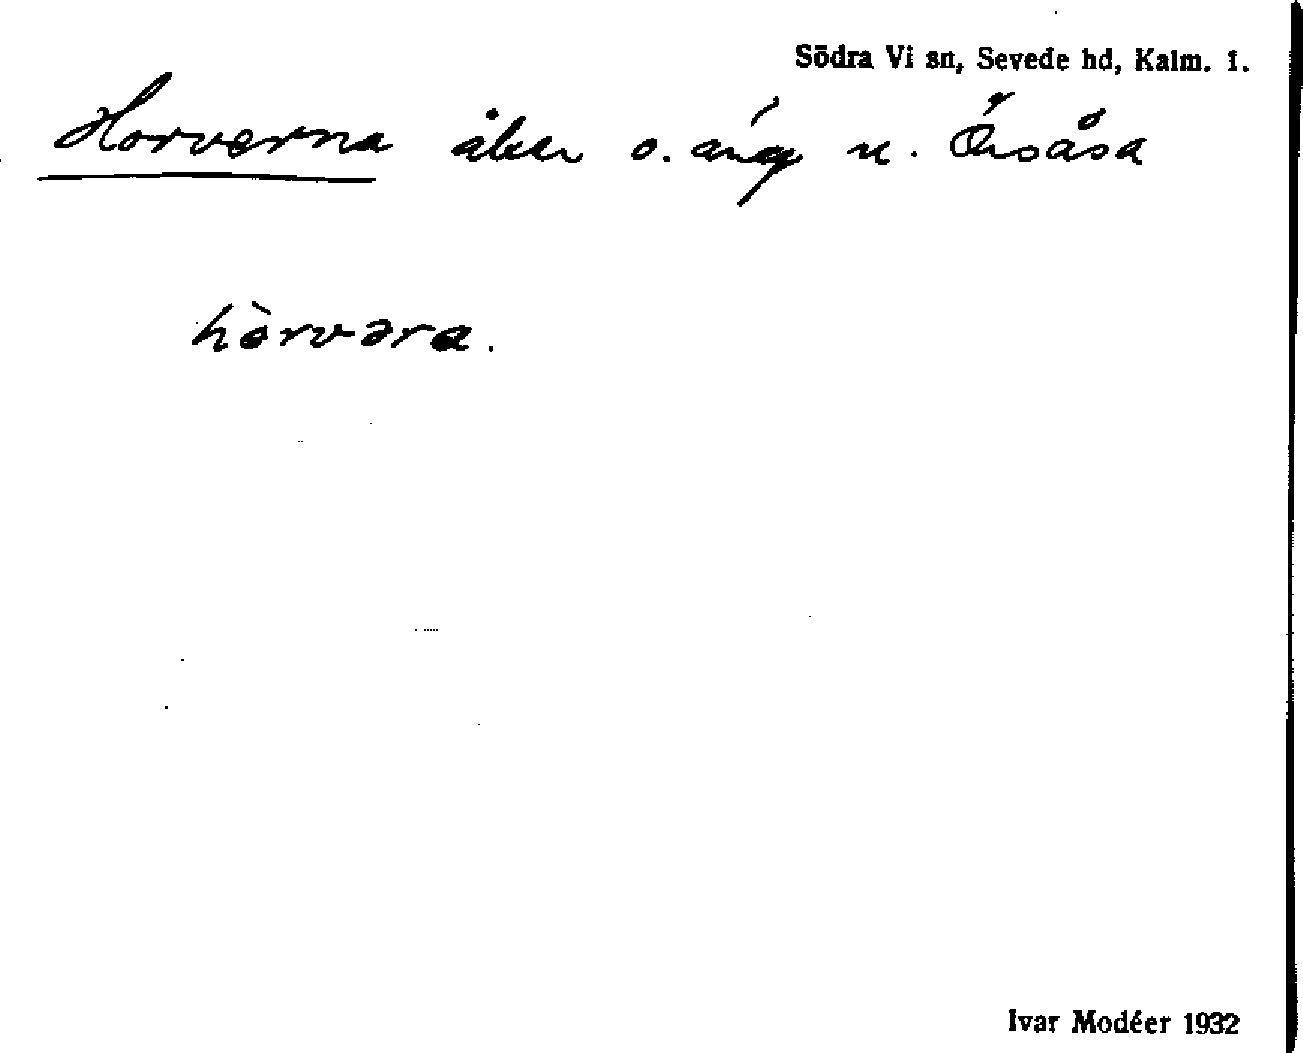 Södra Vi sn, Sevede hd, Kalm. l.
Horverna åker o. äng u. Örsåsa
hòrvəra.
Ivar Modéer 1932